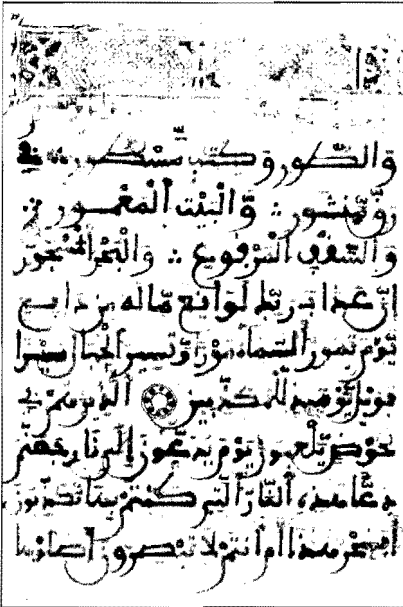 وَالطُّورِ وَكِتَٰبٍ مَّسْطُورٍ فِي
رَقٍّ مَّنشُورٍ وَالْبَيْتِ الْمَعْمُورِ
وَالسَّقْفِ الْمَرْفُوعِ وَالْبَحْرِ الْمَسْجُورِ
إِنَّ عَذَابَ رَبِّكَ لَوَاقِعٌ مَّا لَهُ مِن دَافِعٍ
يَوْمَ تَمُورُ السَّمَاءُ مَوْرًا وَتَسِيرُ الْجِبَالُ سَيْرًا
فَوَيْلٌ يَوْمَئِذٍ لِّلْمُكَذِّبِينَ الَّذِينَ هُمْ فِي
خَوْضٍ يَلْعَبُونَ يَوْمَ يُدَعُّونَ إِلَىٰ نَارِ جَهَنَّمَ
دَعًّا هَٰذِهِ النَّارُ الَّتِي كُنتُم بِهَا تُكَذِّبُونَ
أَفَسِحْرٌ هَٰذَا أَمْ أَنتُمْ لَا تُبْصِرُونَ اصْلَوْهَا